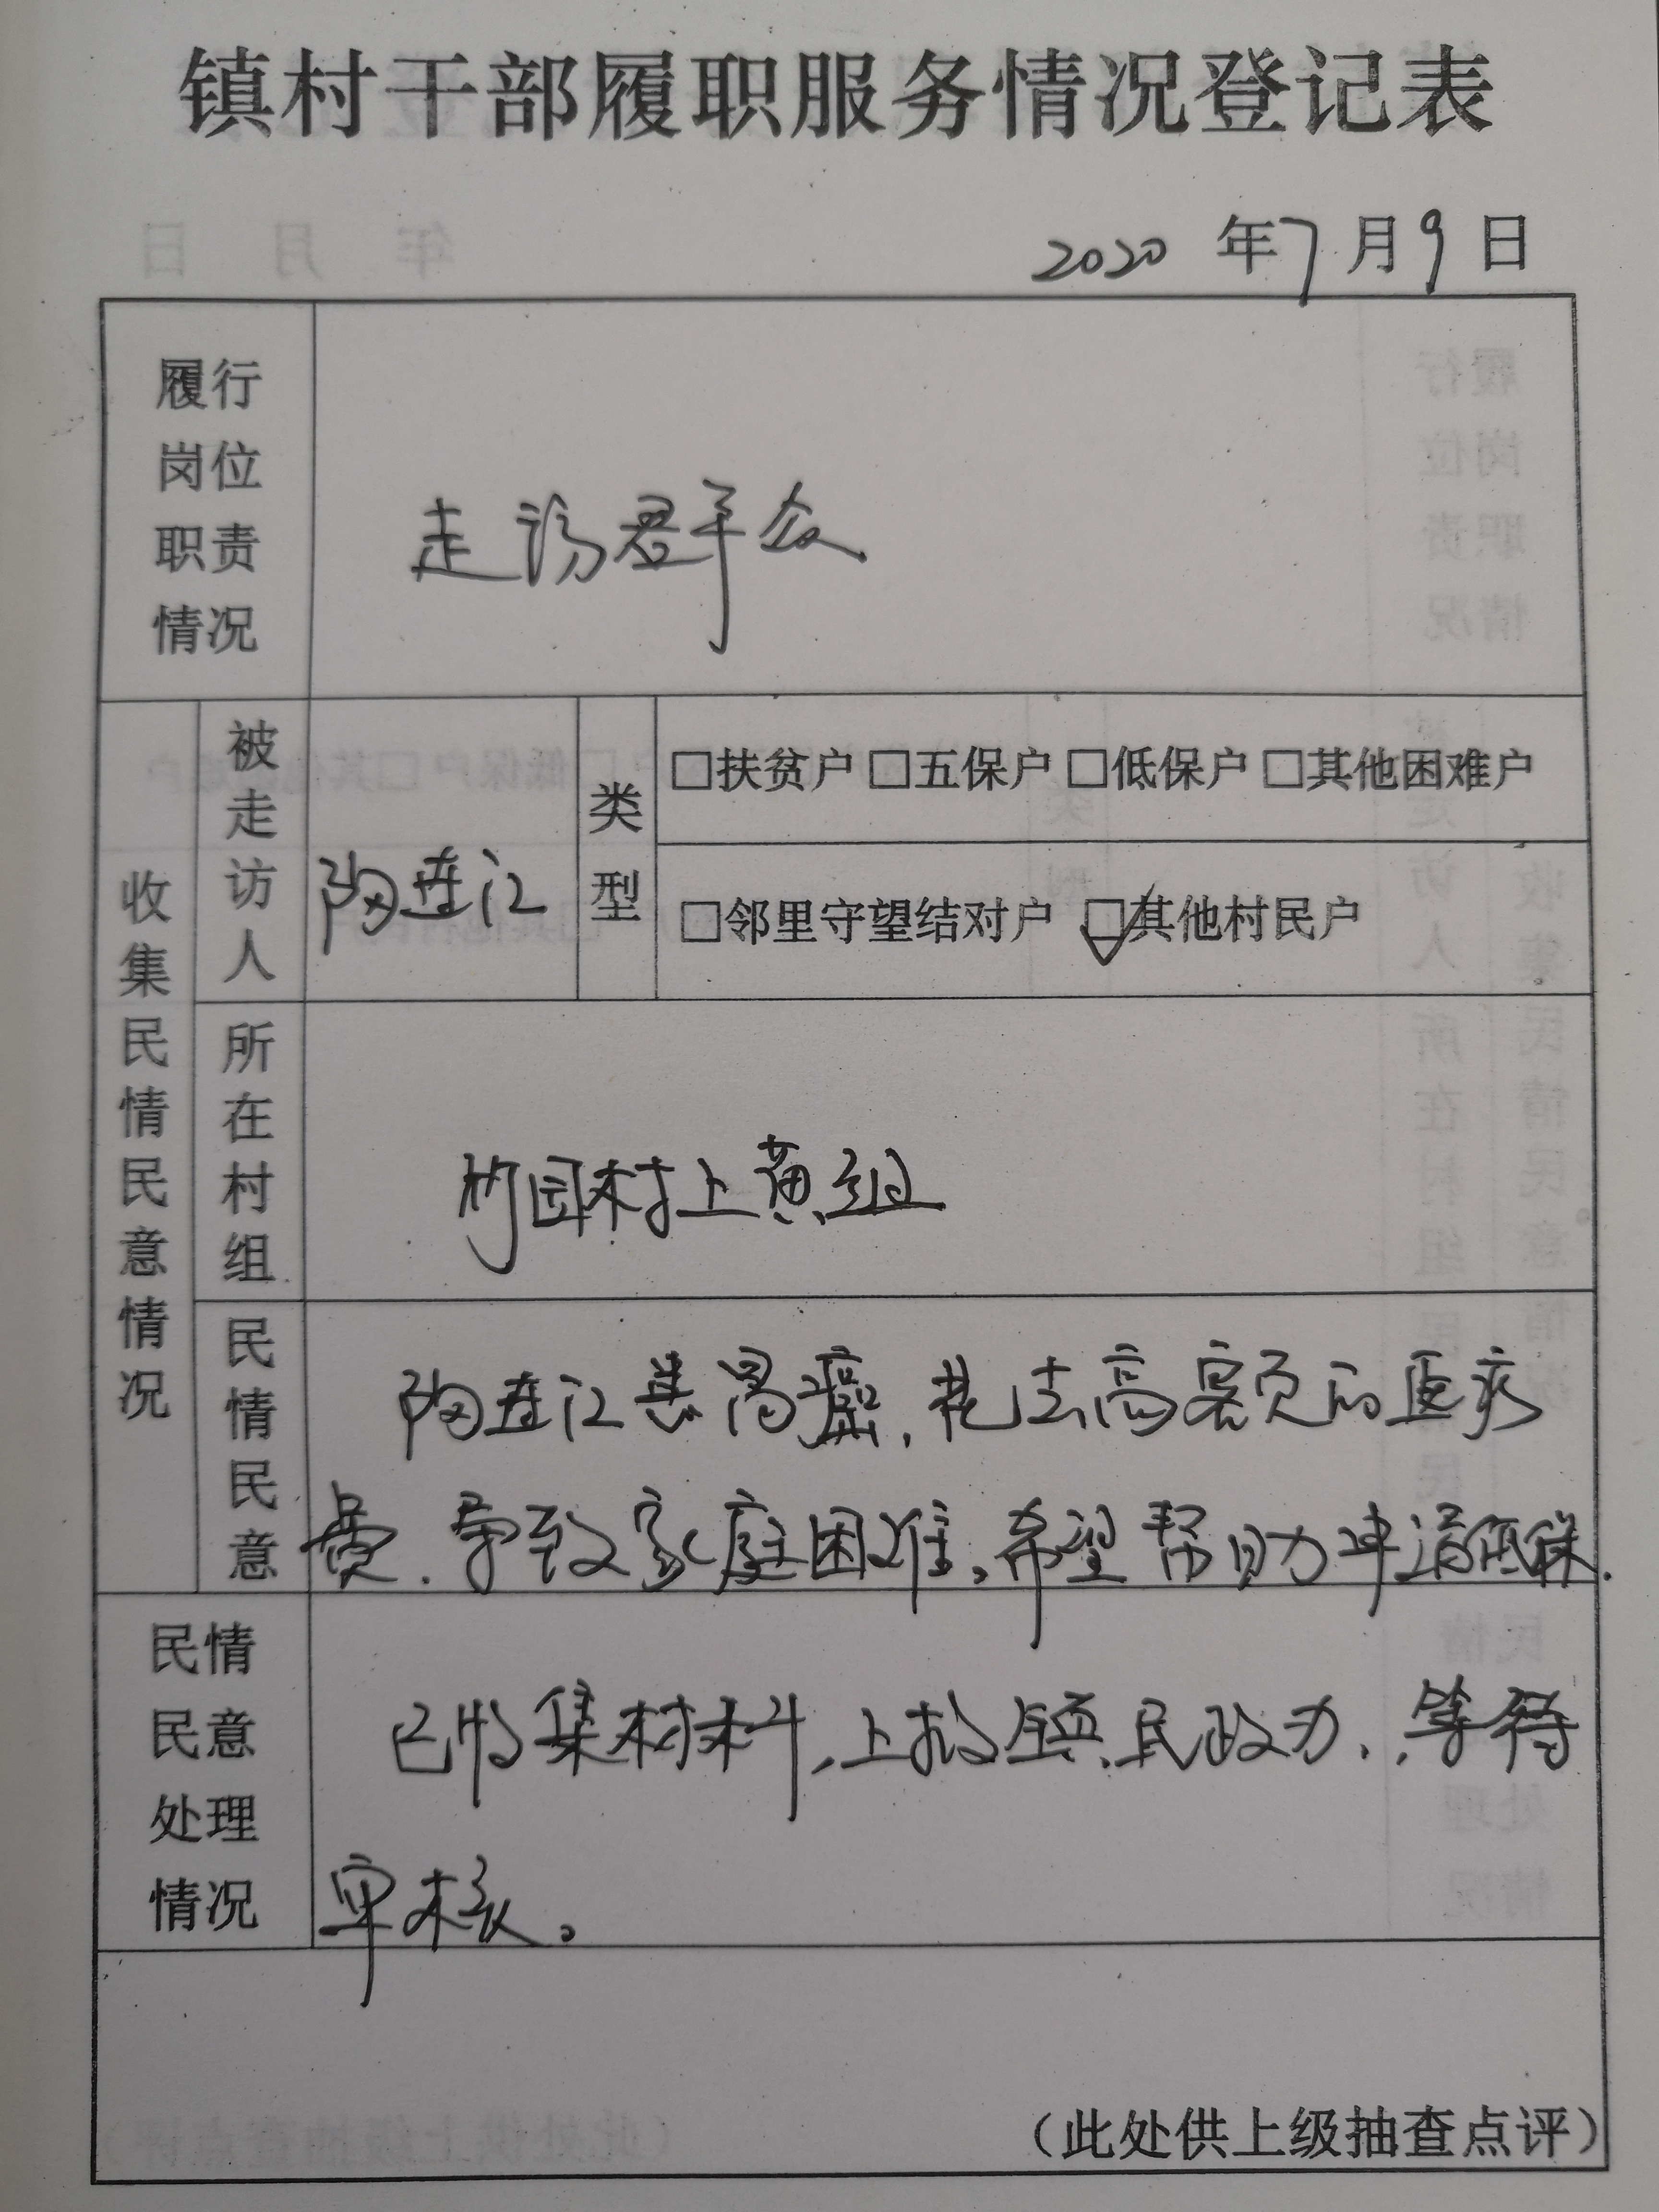 镇村干部履职服务情况登记表
2020 年 7 月 9 日
履行
岗位
职责
情况
走访群众
收集民情民意情况
被走访人
陶连江
类型
□扶贫户 □五保户 □低保户 □其他困难户
□邻里守望结对户 ☑其他村民户
所在村组
竹园村上黄组
民情民意
陶连江患胃癌,花去高额的医疗
费.导致家庭困难。希望帮助申请低保.
民情
民意
处理
情况
已收集材料,上报镇民政办,等待
审核。
(此处供上级抽查点评)